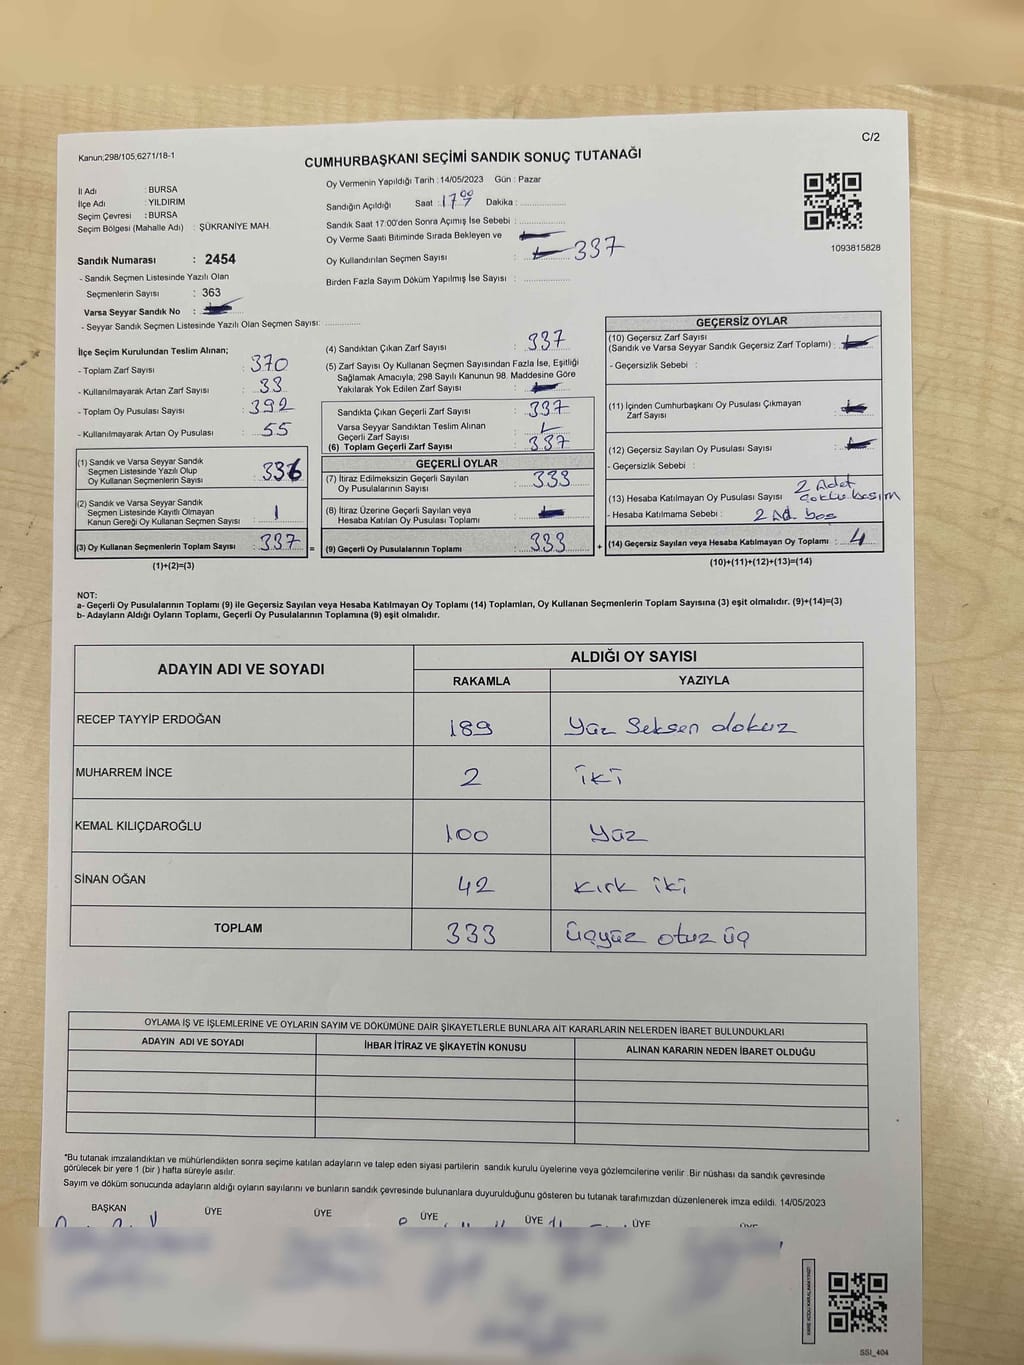 C/2
Kanun;298/105;6271/18-1
CUMHURBAŞKANI SEÇİMİ SANDIK SONUÇ TUTANAĞI
İl Adı : BURSA
İlçe Adı : YILDIRIM
Seçim Çevresi : BURSA
Seçim Bölgesi (Mahalle Adı) : ŞÜKRANİYE MAH.
Sandık Numarası : 2454
- Sandık Seçmen Listesinde Yazılı Olan
Seçmenlerin Sayısı : 363
Varsa Seyyar Sandık No :
- Seyyar Sandık Seçmen Listesinde Yazılı Olan Seçmen Sayısı:
Oy Vermenin Yapıldığı Tarih : 14/05/2023 Gün : Pazar
Sandığın Açıldığı Saat : 17 00 Dakika :
Sandık Saat 17:00'den Sonra Açımış İse Sebebi :
Oy Verme Saati Bitiminde Sırada Bekleyen ve
Oy Kullandırılan Seçmen Sayısı : 337
Birden Fazla Sayım Döküm Yapılmış İse Sayısı :
1093815828
İlçe Seçim Kurulundan Teslim Alınan;
- Toplam Zarf Sayısı : 370
- Kullanılmayarak Artan Zarf Sayısı : 33
- Toplam Oy Pusulası Sayısı : 392
- Kullanılmayarak Artan Oy Pusulası : 55
(1) Sandık ve Varsa Seyyar Sandık
Seçmen Listesinde Yazılı Olup
Oy Kullanan Seçmenlerin Sayısı : 336
(2) Sandık ve Varsa Seyyar Sandık
Seçmen Listesinde Kayıtlı Olmayan
Kanun Gereği Oy Kullanan Seçmen Sayısı : 1
(3) Oy Kullanan Seçmenlerin Toplam Sayısı : 337 =
(1)+(2)=(3)
(4) Sandıktan Çıkan Zarf Sayısı : 337
(5) Zarf Sayısı Oy Kullanan Seçmen Sayısından Fazla İse, Eşitliği
Sağlamak Amacıyla, 298 Sayılı Kanunun 98. Maddesine Göre
Yakılarak Yok Edilen Zarf Sayısı :
Sandıkta Çıkan Geçerli Zarf Sayısı : 337
Varsa Seyyar Sandıktan Teslim Alınan
Geçerli Zarf Sayısı :
(6) Toplam Geçerli Zarf Sayısı : 337
GEÇERLİ OYLAR
(7) İtiraz Edilmeksizin Geçerli Sayılan
Oy Pusulalarının Sayısı : 333
(8) İtiraz Üzerine Geçerli Sayılan veya
Hesaba Katılan Oy Pusulası Toplamı :
(9) Geçerli Oy Pusulalarının Toplamı : 333 +
GEÇERSİZ OYLAR
(10) Geçersiz Zarf Sayısı
(Sandık ve Varsa Seyyar Sandık Geçersiz Zarf Toplamı) :
- Geçersizlik Sebebi :
(11) İçinden Cumhurbaşkanı Oy Pusulası Çıkmayan
Zarf Sayısı :
(12) Geçersiz Sayılan Oy Pusulası Sayısı :
- Geçersizlik Sebebi :
(13) Hesaba Katılmayan Oy Pusulası Sayısı 2 Adet
çoklu basım
- Hesaba Katılmama Sebebi : 2 Ad. boş
(14) Geçersiz Sayılan veya Hesaba Katılmayan Oy Toplamı : 4
(10)+(11)+(12)+(13)=(14)
NOT:
a- Geçerli Oy Pusulalarının Toplamı (9) ile Geçersiz Sayılan veya Hesaba Katılmayan Oy Toplamı (14) Toplamları, Oy Kullanan Seçmenlerin Toplam Sayısına (3) eşit olmalıdır. (9)+(14)=(3)
b- Adayların Aldığı Oyların Toplamı, Geçerli Oy Pusulalarının Toplamına (9) eşit olmalıdır.
ADAYIN ADI VE SOYADI
ALDIĞI OY SAYISI
RAKAMLA YAZIYLA
RECEP TAYYİP ERDOĞAN 189 Yüz Seksen dokuz
MUHARREM İNCE 2 iki
KEMAL KILIÇDAROĞLU 100 Yüz
SİNAN OĞAN 42 kırk iki
TOPLAM 333 üçyüz otuz üç
OYLAMA İŞ VE İŞLEMLERİNE VE OYLARIN SAYIM VE DÖKÜMÜNE DAİR ŞİKAYETLERLE BUNLARA AİT KARARLARIN NELERDEN İBARET BULUNDUKLARI
ADAYIN ADI VE SOYADI İHBAR İTİRAZ VE ŞİKAYETİN KONUSU ALINAN KARARIN NEDEN İBARET OLDUĞU
*Bu tutanak imzalandıktan ve mühürlendikten sonra seçime katılan adayların ve talep eden siyasi partilerin sandık kurulu üyelerine veya gözlemcilerine verilir. Bir nüshası da sandık çevresinde
görülecek bir yere 1 (bir ) hafta süreyle asılır.
Sayım ve döküm sonucunda adayların aldığı oyların sayılarını ve bunların sandık çevresinde bulunanlara duyurulduğunu gösteren bu tutanak tarafımızdan düzenlenerek imza edildi. 14/05/2023
BAŞKAN ÜYE ÜYE ÜYE ÜYE ÜYE
SSI_404